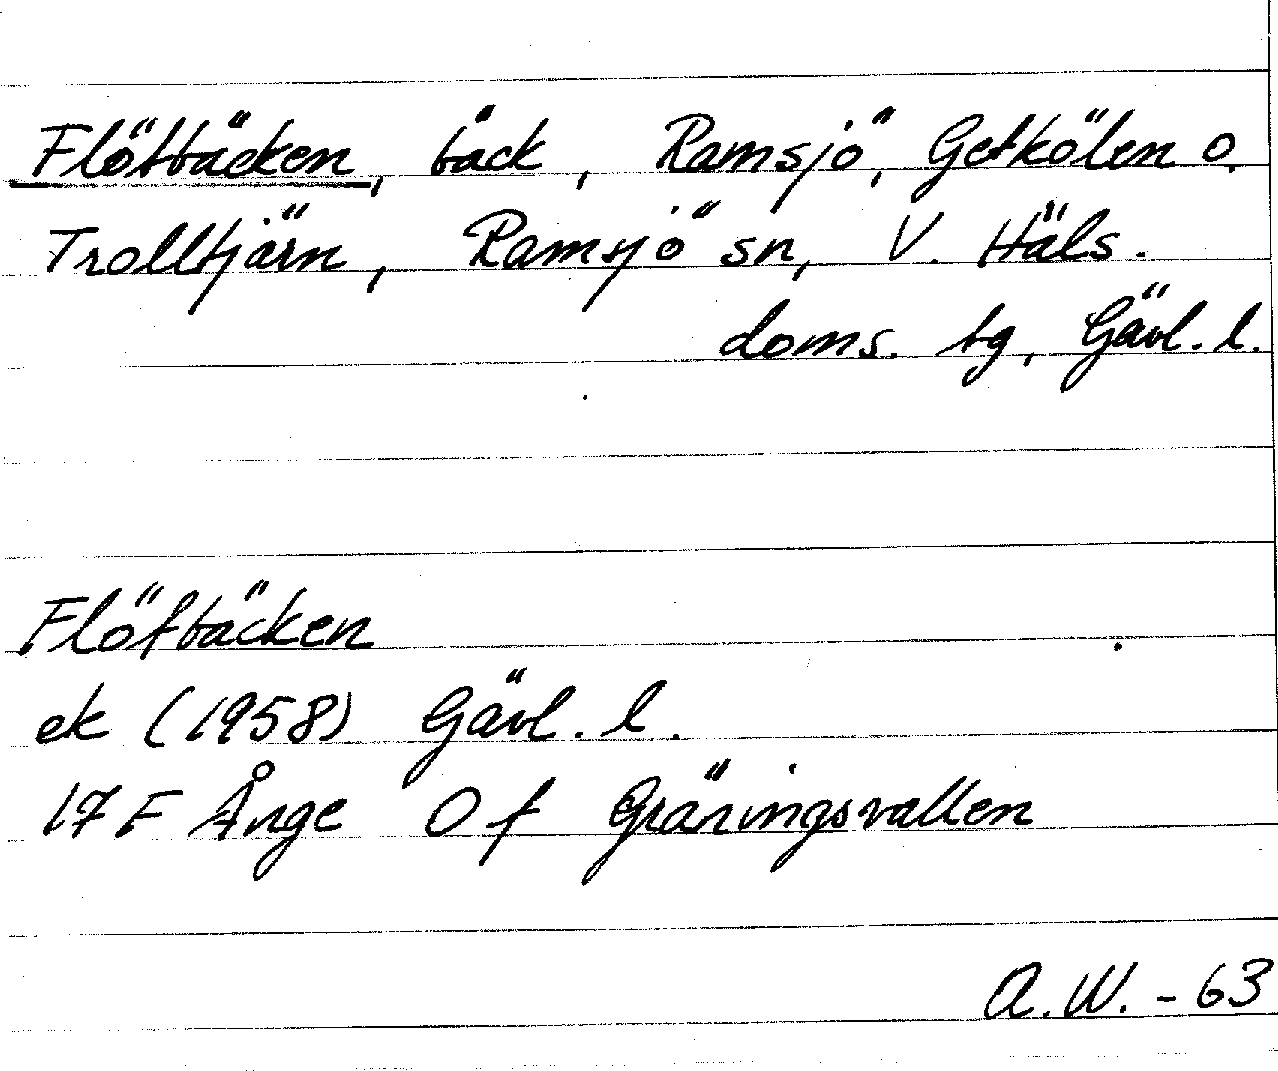 Flötbäcken, bäck, Ramsjö, Getkölen o.
Trolltjärn, Ramsjö sn, V. Häls.
doms. tg, Gävl. l.
Flötbäcken
ek (1958) Gävl. l.
17 F Ånge O f Gräningsvallen
A.W. - 63